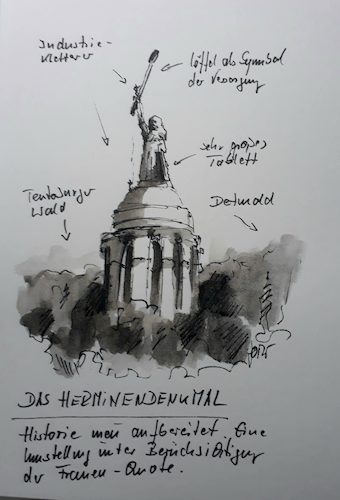 Industrie-
kletterer
Löffel als Symbol
der Versorgung
sehr großes
Tablett
Teutoburger
Wald
Detmold
DAS HERMINENDENKMAL
Historie neu aufbereitet. Eine
Umstellung unter Berücksichtigung
der Frauen-Quote.